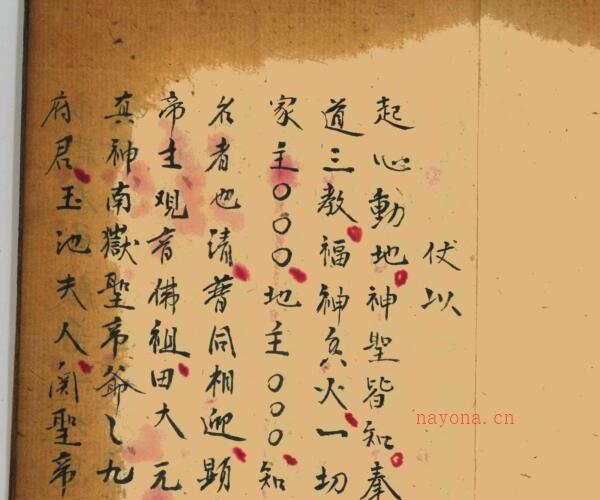 伏以
起心動地神聖皆知奉
道三教福神頁火一切
家主〇〇〇地主〇〇〇知
名者也清普同相迎顕
帝主观音佛祖田大元
真神南嶽聖帝爺々九
府君玉池夫人関聖帝
nayona.cn